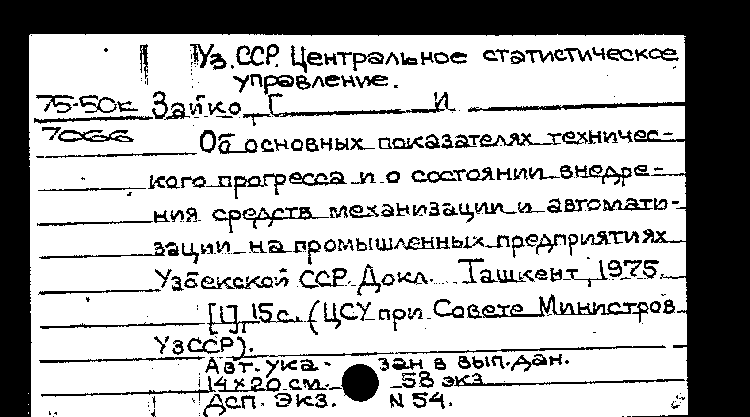 Уз.ССР. Центральное статистическое
управление.
75-50к Зайко, Г И
7066
Об основных показателях техничес-
кого прогресса и о состоянии внедре-
ния средств механизации и автомати-
зации на промышленных предприятиях
Узбекской ССР. Докл. Ташкент, 1975.
[1], 15 с. (ЦСУ при Совете Министров
УзССР).
Авт. ука- зан в вып. дан.
14×20 см. 58 экз.
Дсп. Экз. N 54.